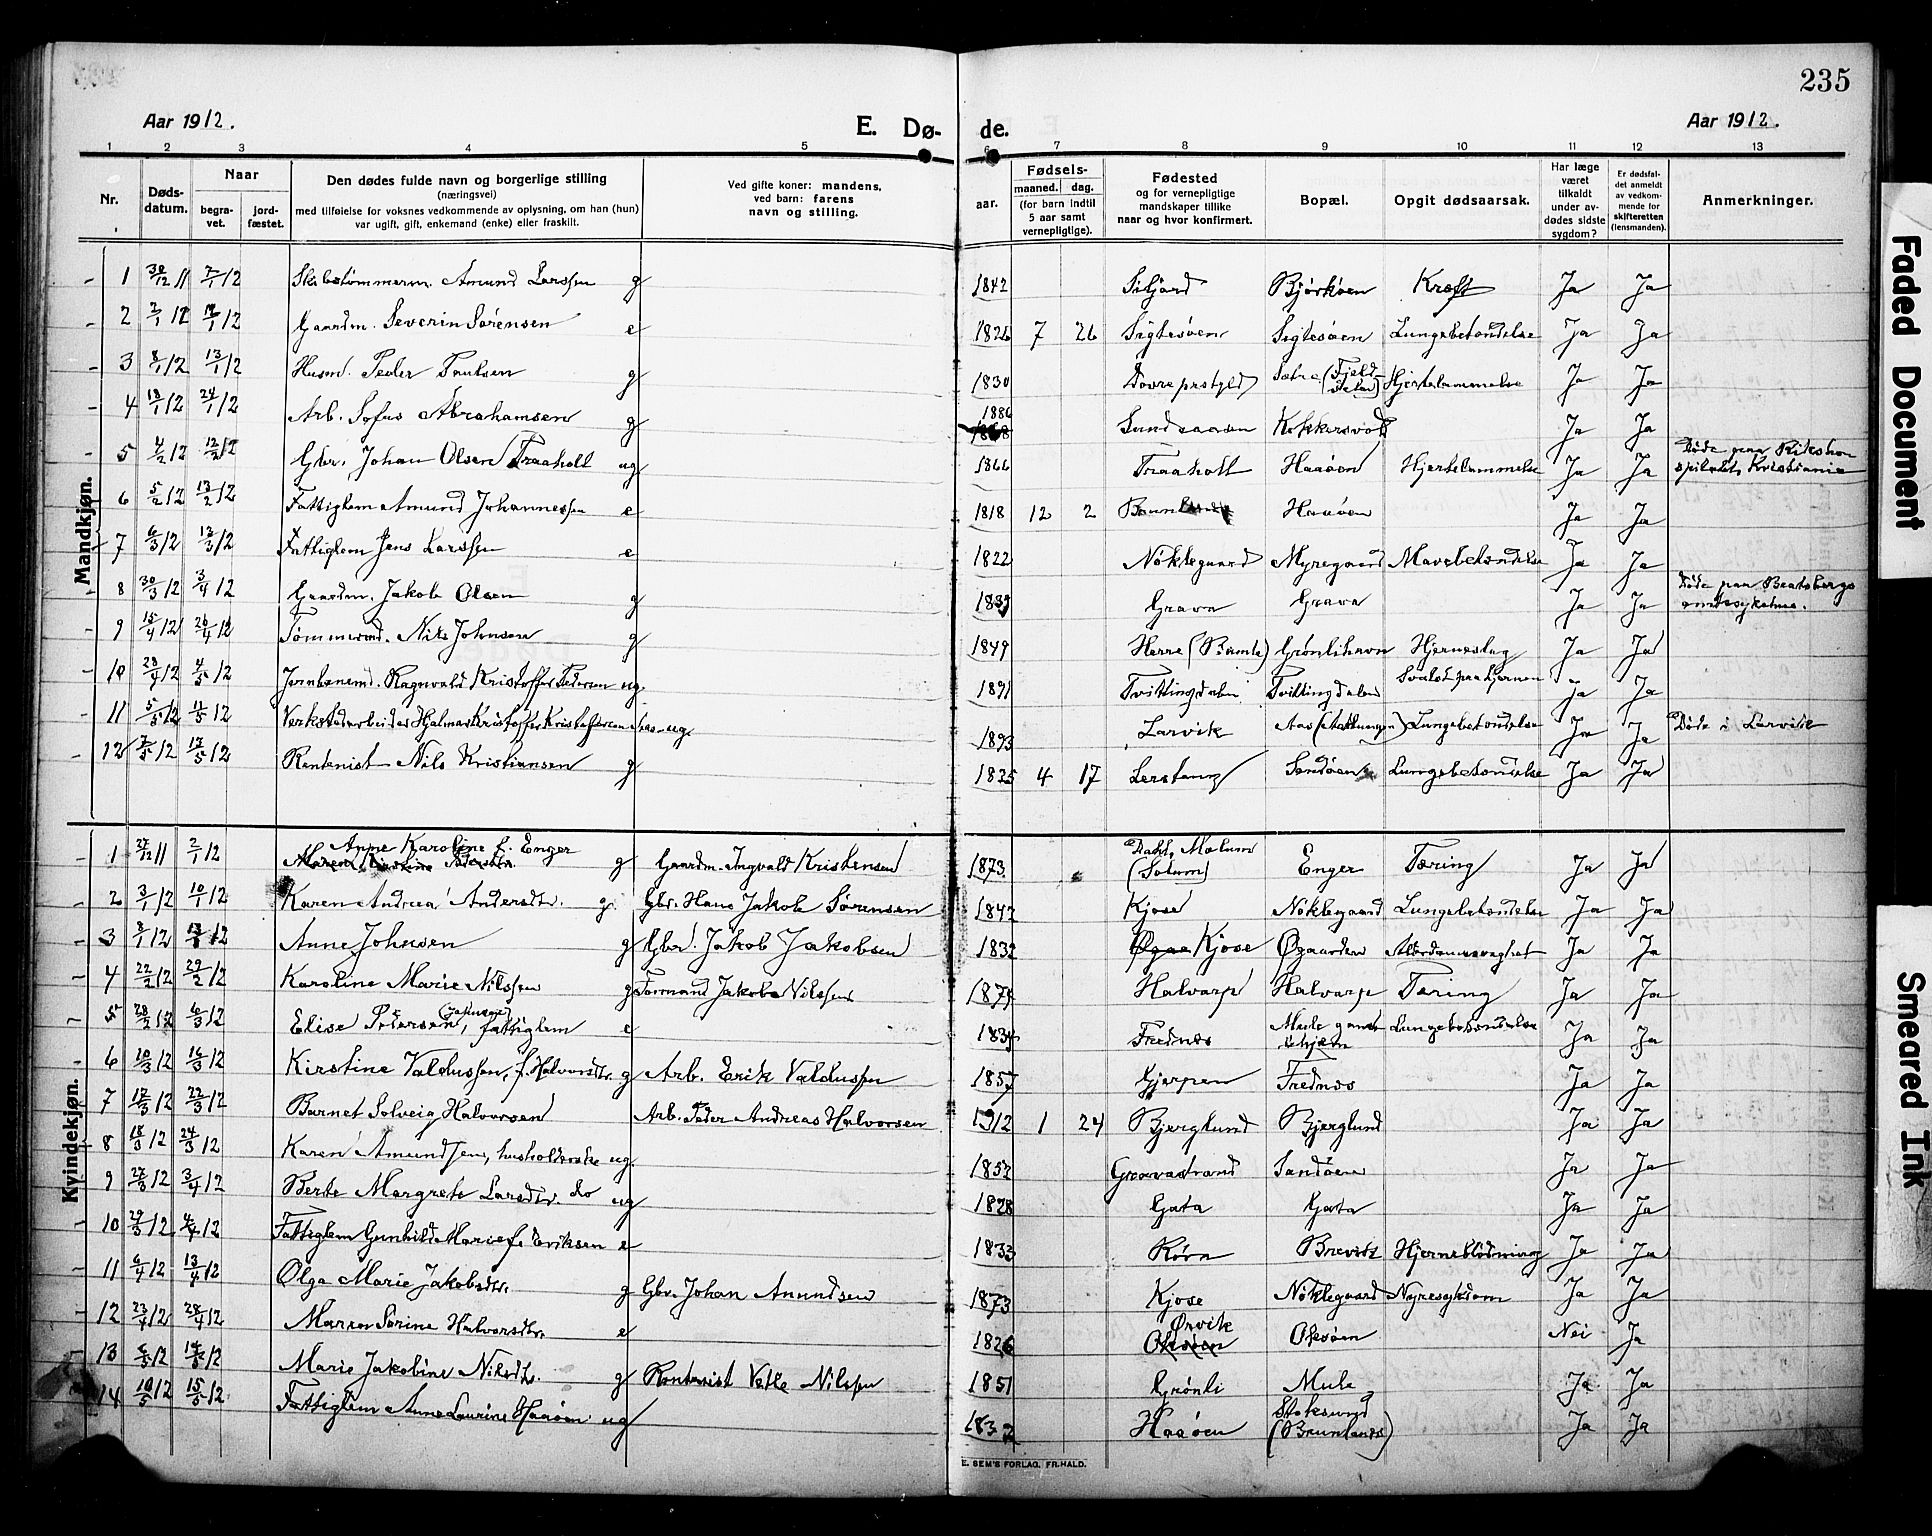 235
Aar 1912.
E. Dø-
de.
Aar 1912.
1 2 3 4 5 6 7 8 9 10 11 12 13
Nr.
Døds-datum.
Naar
begra-vet.
jord-fæstet.
Den dødes fulde navn og borgerlige stilling
(næringsvei)
med tilføielse for voksnes vedkommende av oplysning, om han (hun)
var ugift, gift, enkemand (enke) eller fraskilt.
Ved gifte koner: mandens,
ved barn: farens
navn og stilling.
Fødsels-
aar.
maaned.
dag.
(for barn indtil
5 aar samt
vernepligtige).
Fødested
og for vernepligtige
mandskaper tillike
naar og hvor konfirmert.
Bopæl.
Opgit dødsaarsak.
Har læge
været
tilkaldt
under av-
dødes sidste
sygdom?
Er dødsfal-
det anmeldt
av vedkom-
mende for
skifteretten
(lensmanden).
Anmerkninger.
Mandkjøn.
1 30/12 11 7/1 12 Skibstømmerm. Amund Larssen g 1842 Siljord Bjørkøen Kræft Ja Ja
2 2/1 12 12 Gaardm. Severin Sørensen e 1826 7 26 Sigtesøen Sigtesøen Lungebetændelse Ja Ja
3 8/1 12 13/1 12 Husmd. Peder Paulsen g 1830 Dovre prstgjld Sætre (Fjeld- Hjertelammelse Ja Ja
4 18/1 12 24/1 12 Arb. Sofus Abrahamsen g 1886 Sundsaasen Kokkersvold Ja Ja
5 4/2 12 12/2 12 Gbr. Johan Olsen Traaholt ug 1866 Traaholt Haaøen Hjertelammelse Ja Ja Døde paa Rikshospitalet, Kristiania
6 5/2 12 13/2 12 Fattiglem Amund Johannessen e 1818 12 2 Haaøen Ja Ja
7 6/3 12 12 Fattiglem Jens Larssen e 1822 Nøklegaard Myregaard Mavebetændelse Ja Ja
8 30/3 12 3/4 12 Gaardm. Jakob Olsen g 1839 Grava Grava Ja Ja Døde paa Bratsbergs amtssykehus.
9 15/4 12 20/4 12 Tømmermd. Nils Johnsen g 1849 Herre (Bamle) Grønlihavn Hjerneslag Ja Ja
10 28/4 12 4/5 12 Jernbanemd. Ragnvald Kristoffer Pedersen ug. 1891 Tvittingdalen Tvittingdalen Svulst paa hjernen Ja Ja
11 5/5 12 11/5 12 Verkstedarbeider Hjalmar Kristoffer Kristoffersen ug. 1893 Larvik Aas Lungebetændelse Ja Ja Døde i Larvik
12 7/5 12 12 Rentenist Nils Kristiansen g 1825 4 17 Lerstang Sandøen Lungebetændelse Ja Ja
Kvindekjøn.
1 27/12 11 2/1 12 Anne Karoline f. Enger g Gaardm. Ingvald Kristensen 1873 Mælum (Solum) Enger Tæring Ja Ja
2 3/1 12 10/1 12 Karen Andrea Andersdtr. g. Gbr. Hans Jakob Sørensen 1847 Kjose Nøklegaard Lungebetændelse Ja Ja
3 8/1 12 12 Anne Johnsen g Gbr. Jakob Jakobsen 1832 Kjose Øgaarden Alderdomssvaghet Ja Ja
4 22/2 12 29/2 12 Karoline Marie Nilssen g Formand Jakob Nilssen 1874 Halvarp Halvarp Tæring Ja Ja
5 28/2 12 6/3 12 Elise Pedersen, fattiglem e 1834 Frednes Mule Lungebetændelse Ja Ja
6 10/3 12 16/3 12 Kirstine Valdussen, f. Halvorsdtr. g Arb. Erik Valdussen 1857 Gjerpen Frednes Ja Ja
7 12 22/3 12 Barnet Solveig Halvorsen Arb. Peder Andreas Halvorsen 1912 1 24 Bjerglund Bjerglund Ja Ja
8 18/3 12 24/3 12 Karen Amundsen, husholderske ug. 1852 Gravastrand Sandøen Ja Ja
9 27/3 12 3/4 12 Berte Margrete Larsdtr. do ug 1828 Gata Gata Ja Ja
10 29/3 12 4/4 12 Fattiglem Gunhild Marie f. Eriksen e 1833 Røra Brevik Hjerneblødning Ja Ja
11 6/4 12 13/4 12 Olga Marie Jakobsdtr. g Gbr. Johan Amundsen 1873 Kjose Nøklegaard Nyresykdom Ja Ja
12 23/4 12 28/4 12 Maren Sørine Halvorsdtr. e 1826 Ørvik Oksøen Nei Ja
13 12 12 Marie Jakobine Nilsdtr. g Rentenist Vetle Nilssen 1851 Grønli Mule Ja Ja
14 10/5 12 15/5 12 Fattiglem Anne Laurine Haaøen ug 1832 Haaøen Stoksund (Brunlanes) Ja Ja
E. SEM'S FORLAG, FR.HALD.
Faded Document
Smeared Ink